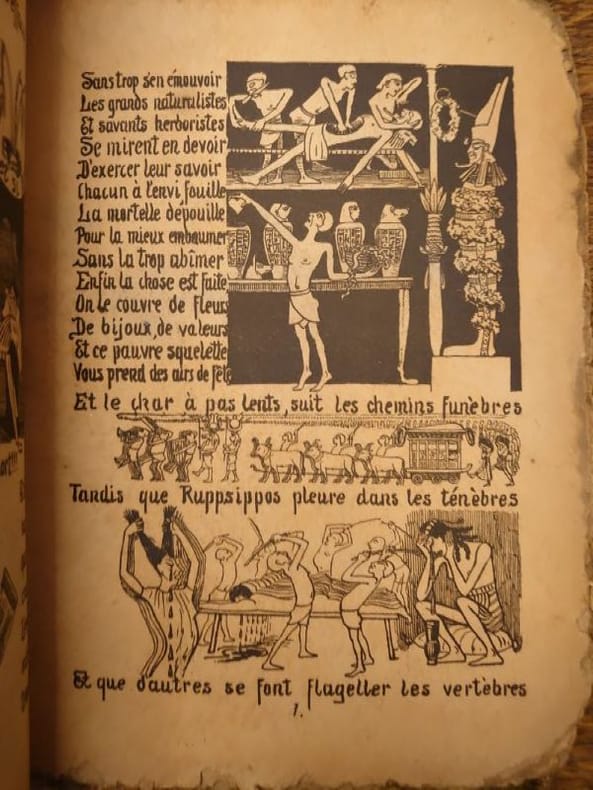 Sans trop s'en émouvoir
Les grands naturalistes
Et savants herboristes
Se mirent en devoir
D'exercer leur savoir
Chacun à l'envi fouille
La mortelle dépouille
Pour la mieux embaumer
Sans la trop abîmer
Enfin la chose est faite
On le couvre de fleurs
De bijoux, de valeurs
Et ce pauvre squelette
Vous prend des airs de fête
Et le char à pas lents, suit les chemins funèbres
Tandis que Ruppsippos pleure dans les ténèbres
Et que d'autres se font flageller les vertèbres
1.